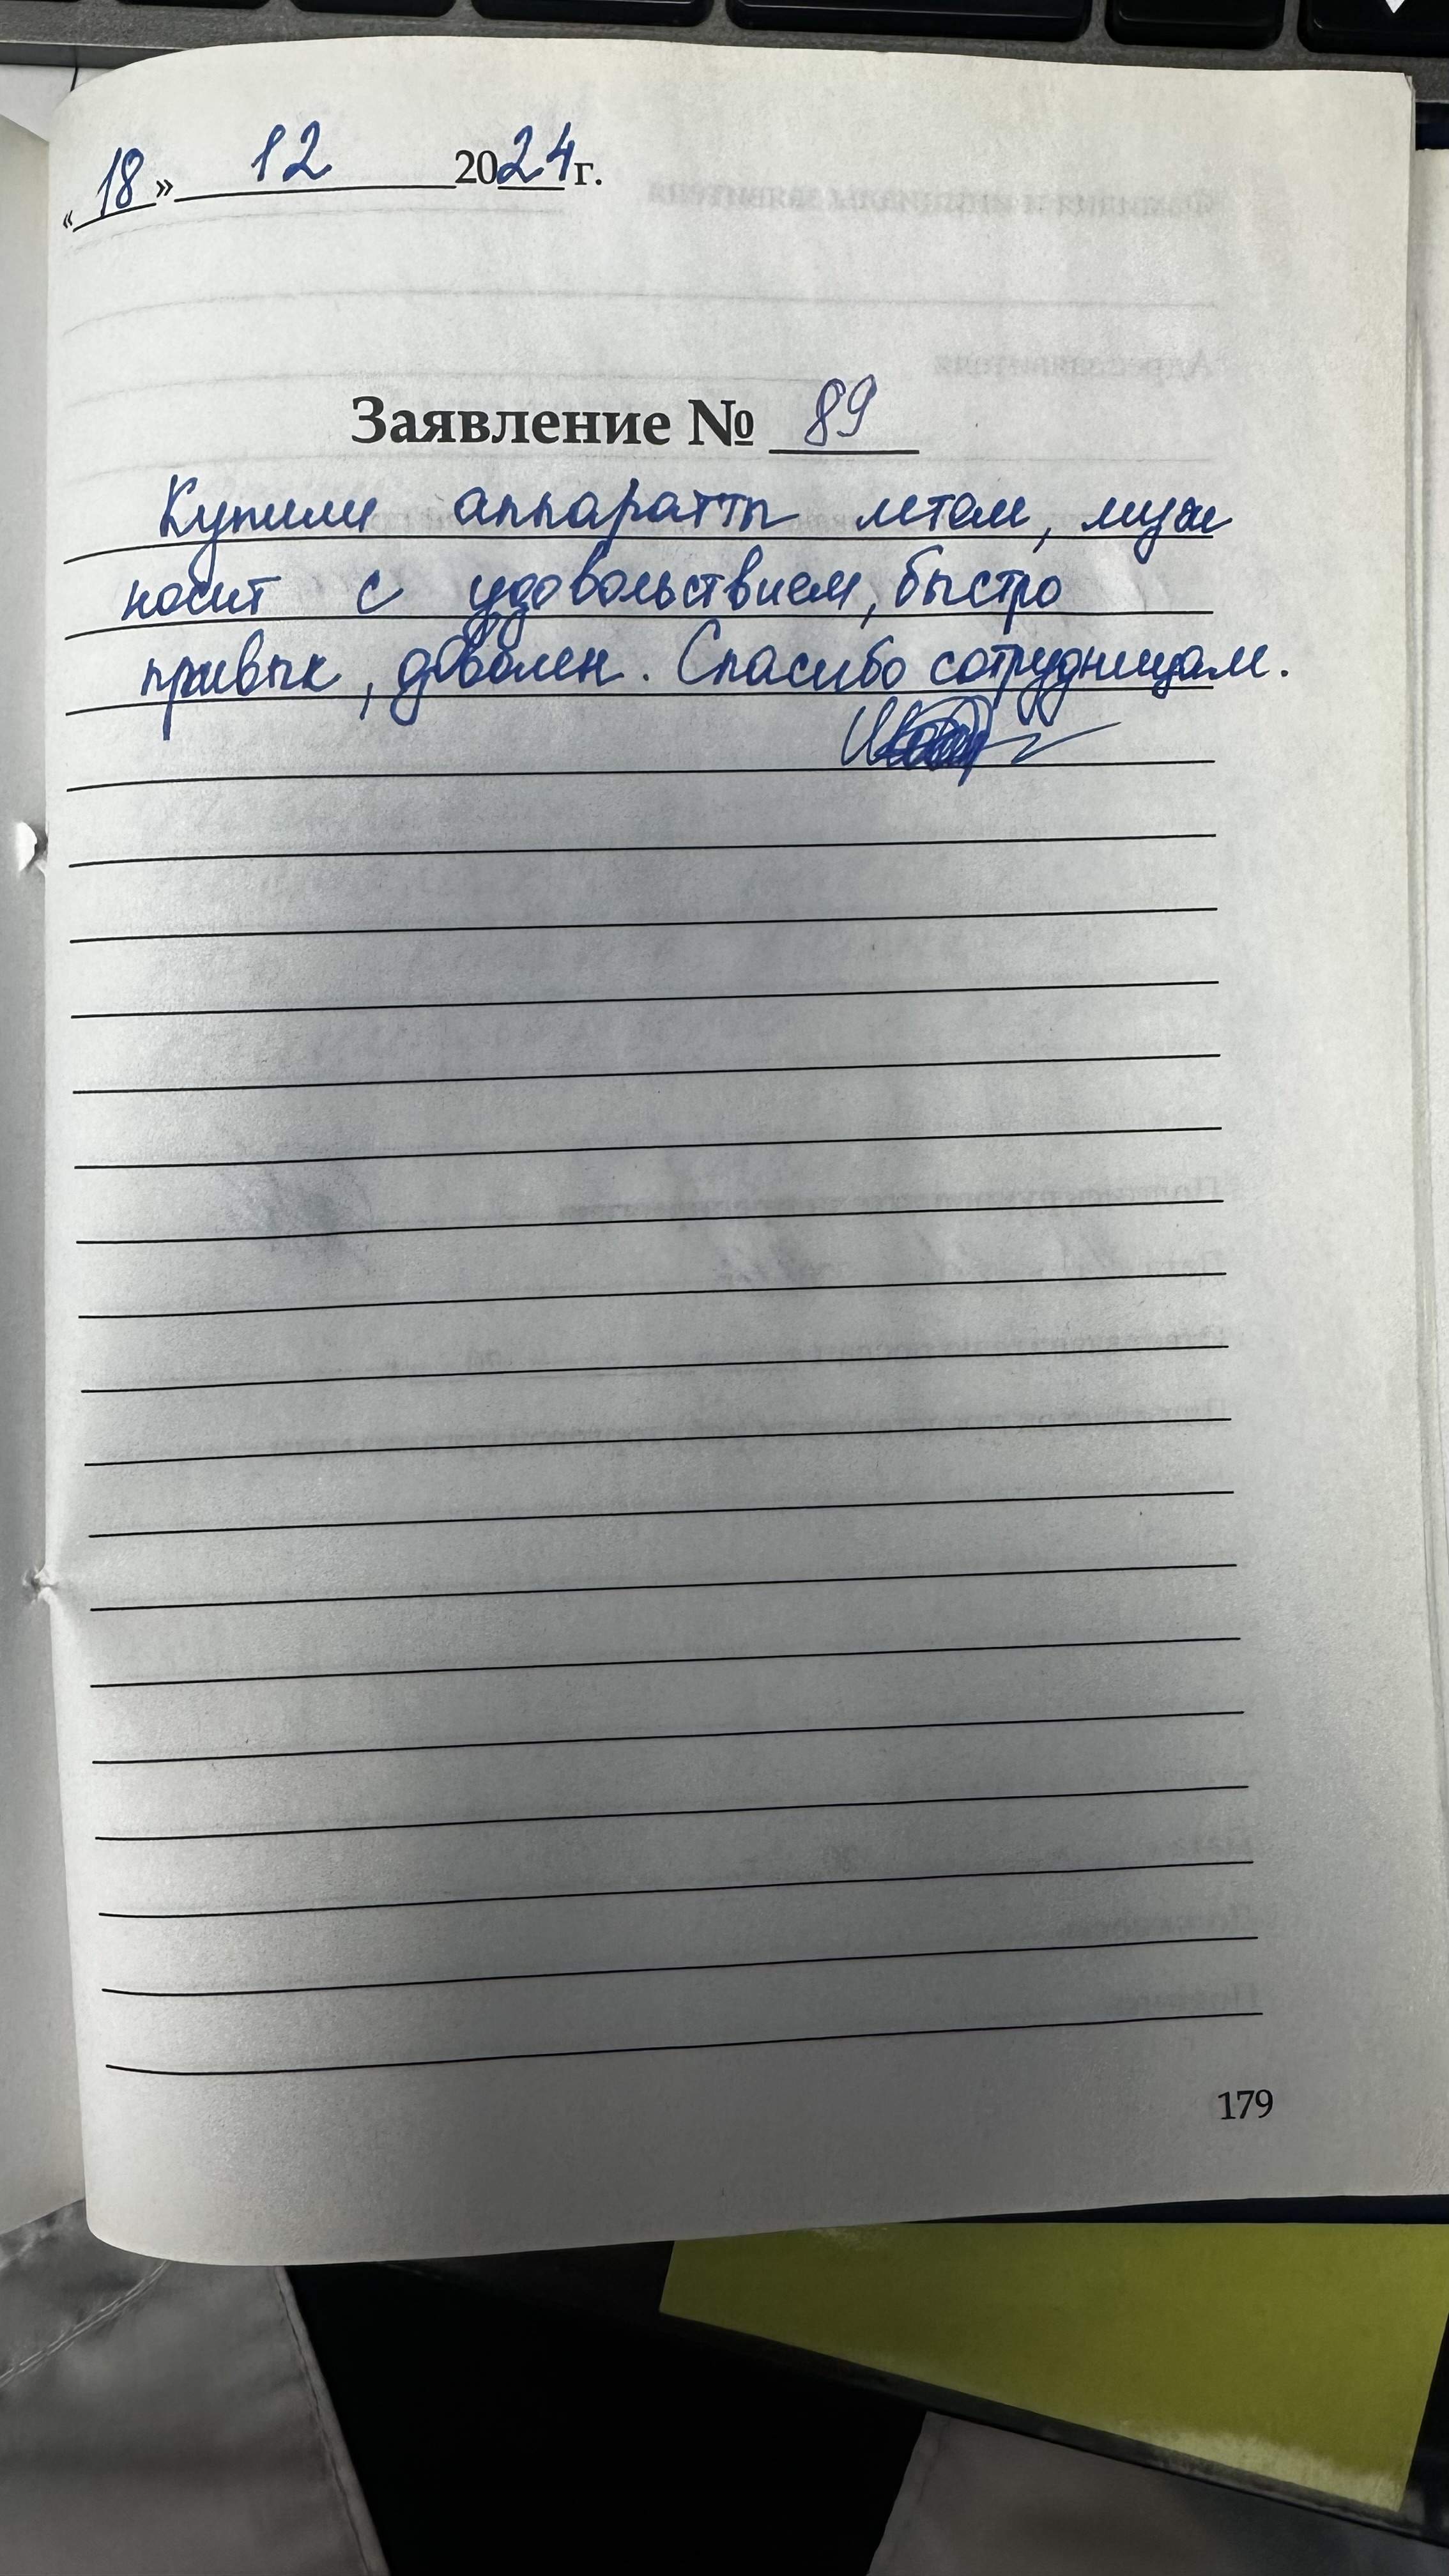 «18» 12 2024 г.
Заявление № 89
Купили аппараты летом, муж
носит с удовольствием, быстро
привык, доволен. Спасибо сотрудницам.
179